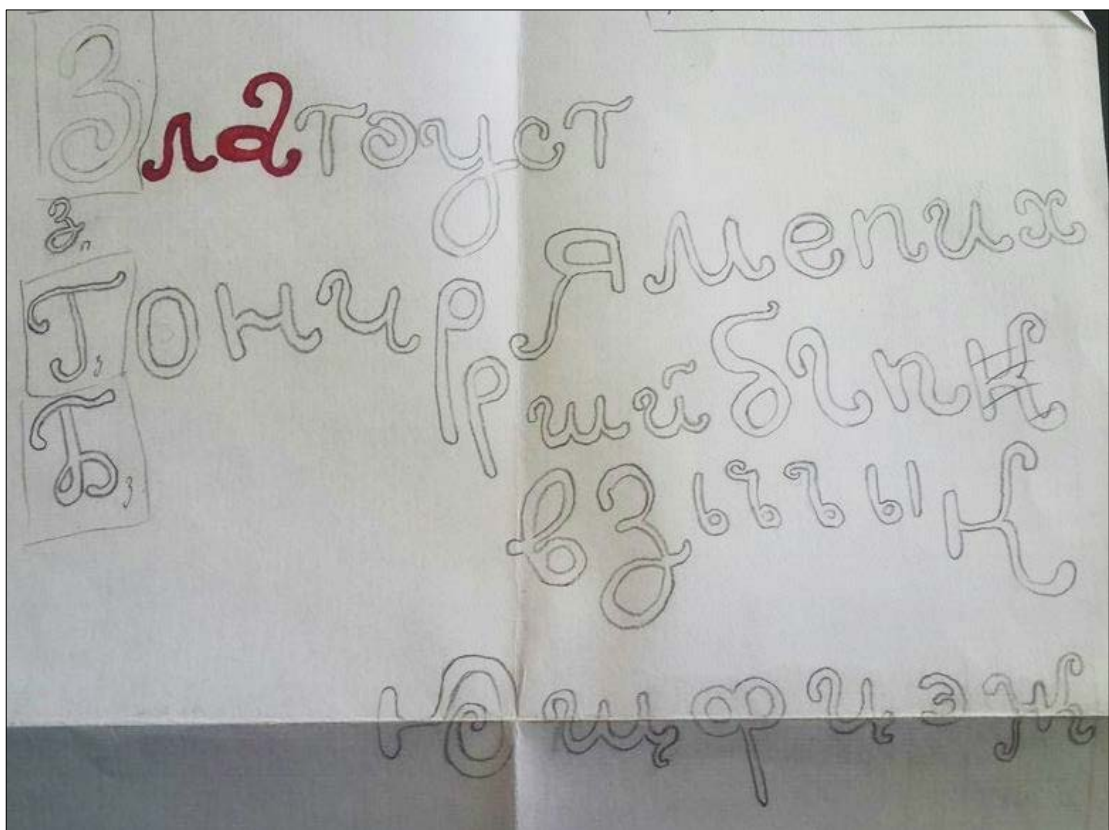 Златоуст
З п
Гонир Я мепих
Б р ш й б г п
в З ь ъ ъ ы к
ю щ ф ц э ж